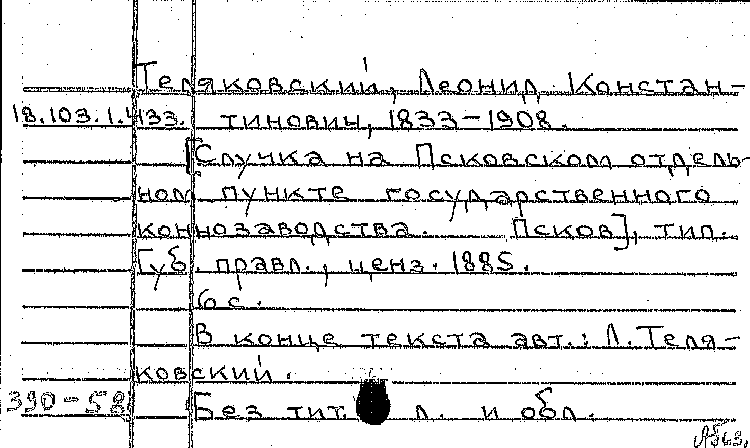 Теляковский, Леонид Констан-
18.103.1.433. тинович, 1833-1908.
[Случка на Псковском отдель-
ном пункте государственного
коннозаводства. Псков], тип.
Губ. правл., ценз. 1885.
6 с.
В конце текста авт.: Л. Теля-
ковский.
390-58 Без тит. л. и обл.